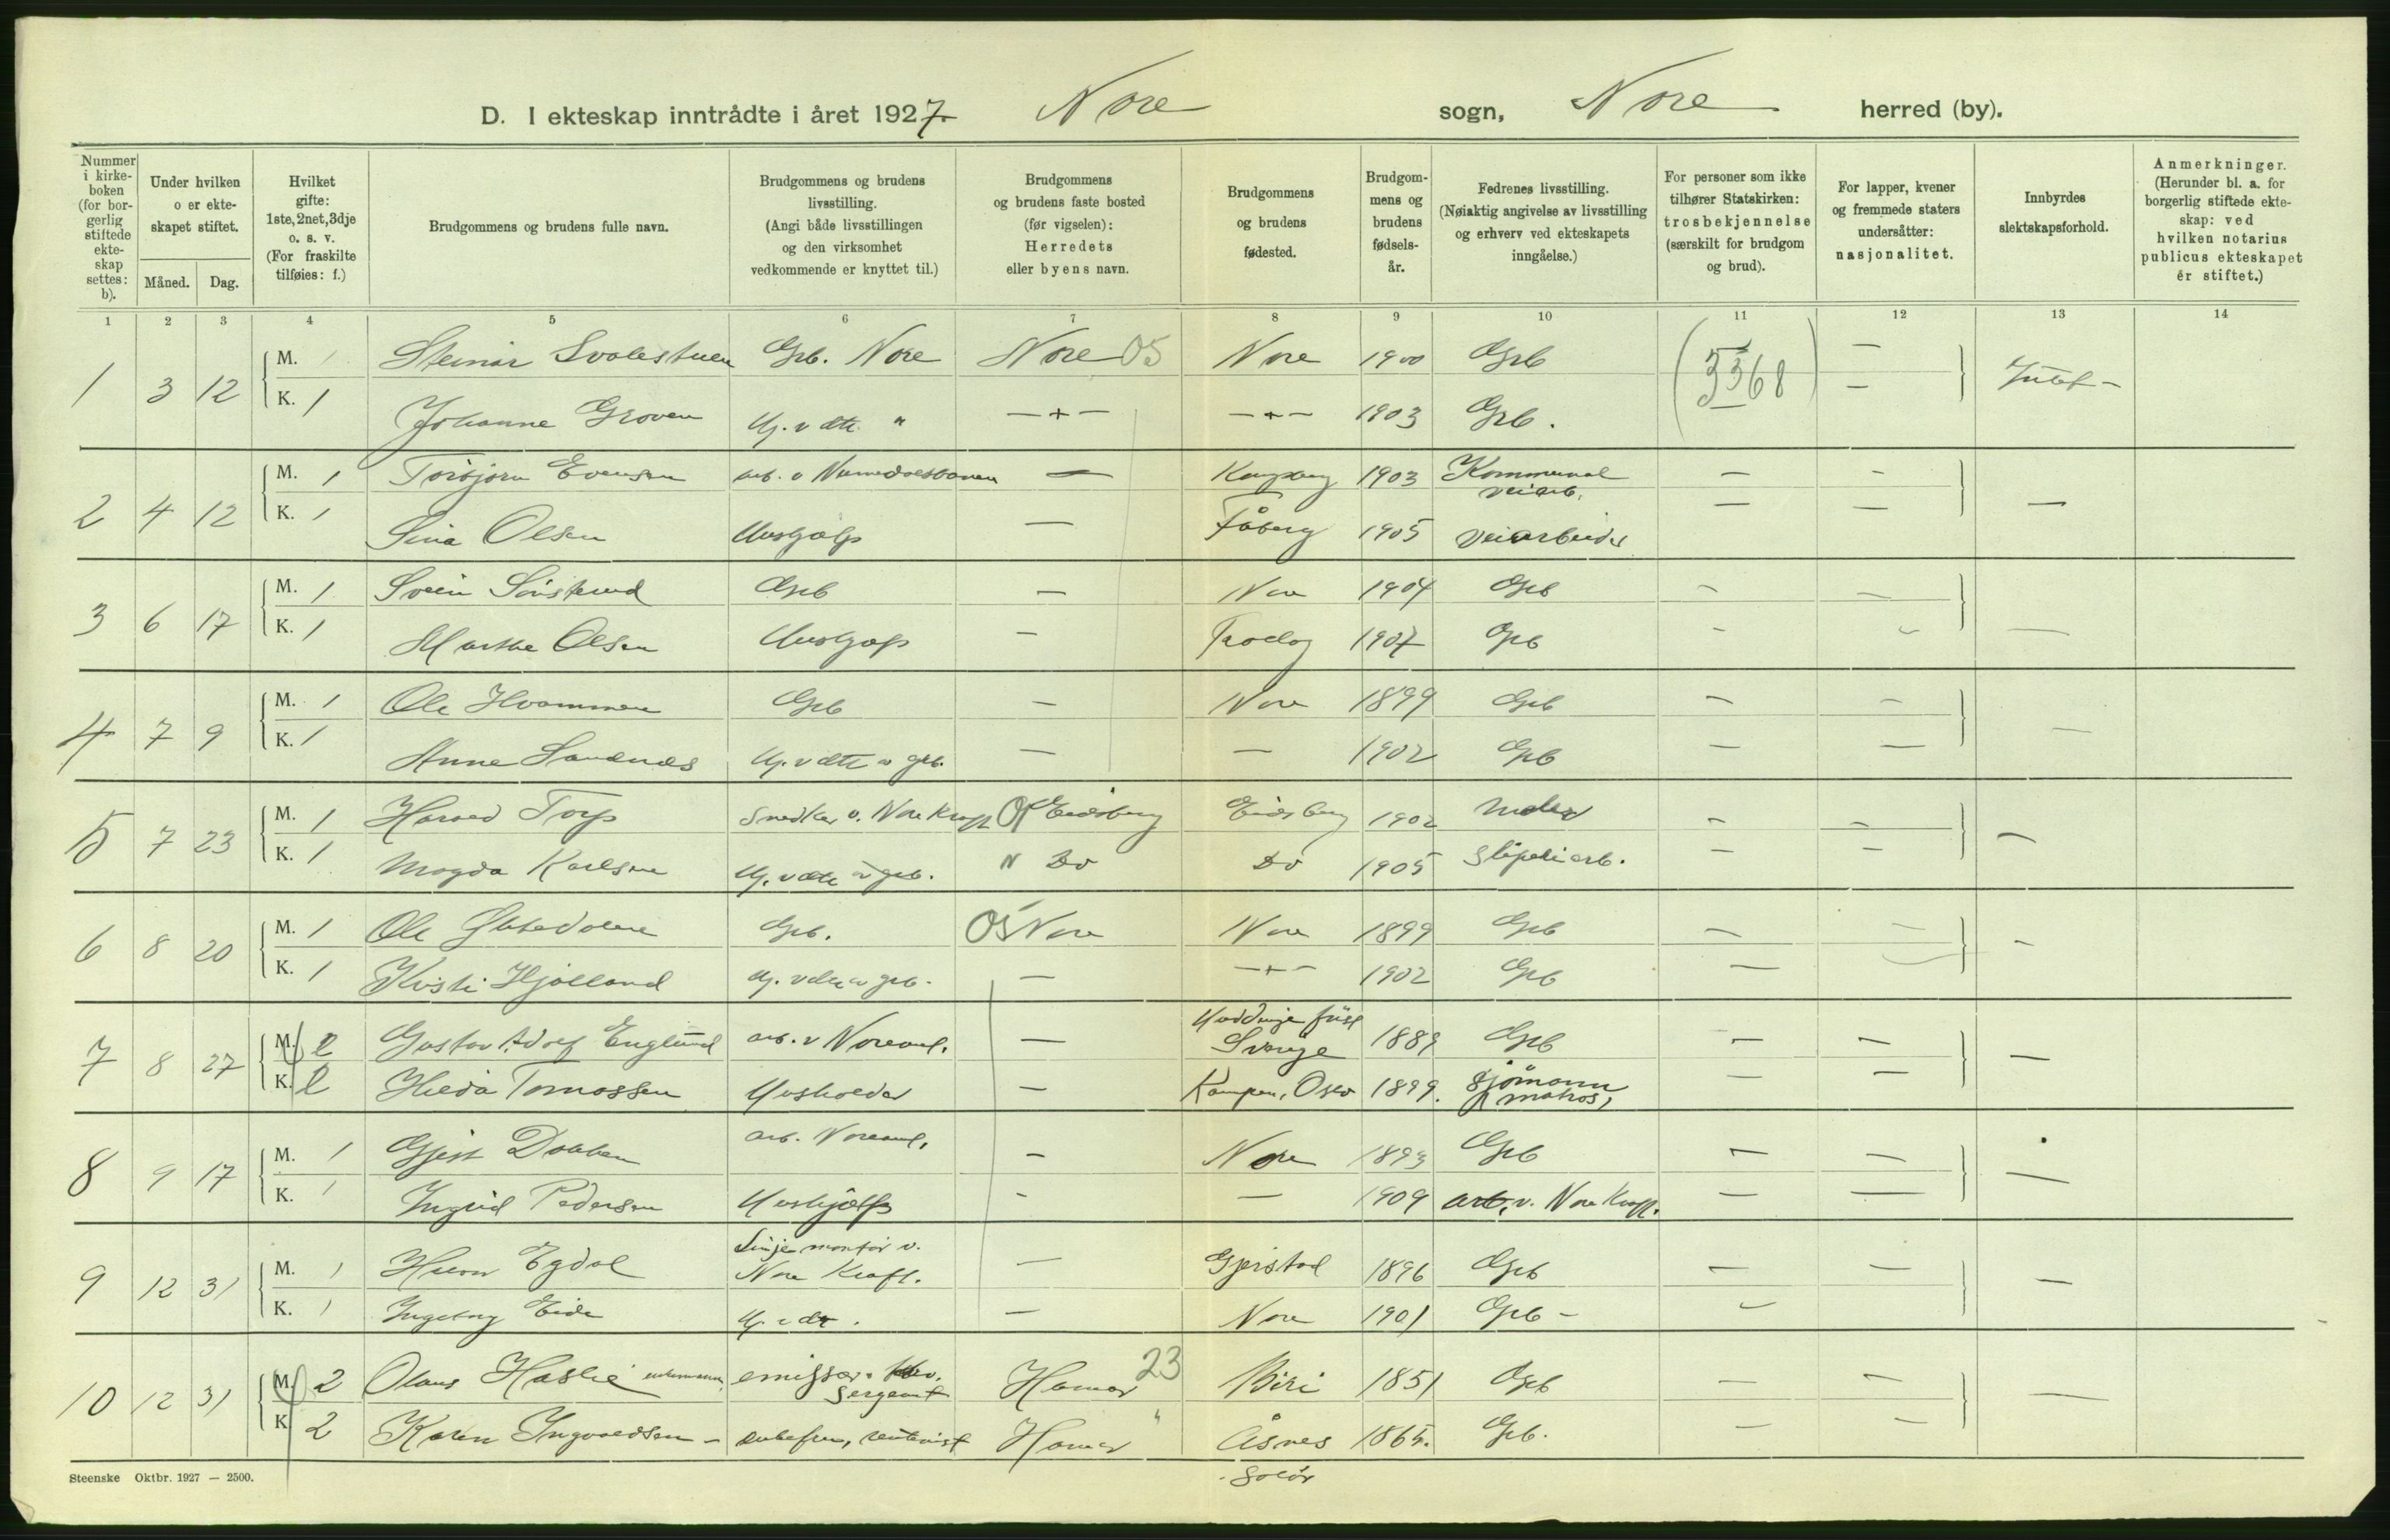 D. I ekteskap inntrådte i året 1927. Nore sogn, Nore herred (by).
Nummer i kirke- boken (for bor- gerlig stiftede ekte- skap settes: b).
Under hvilken o er ekte- skapet stiftet.
Måned. Dag.
Hvilket gifte: 1ste, 2net, 3dje o. s. v. (For fraskilte tilføies: f.)
Brudgommens og brudens fulle navn.
Brudgommens og brudens livsstilling. (Angi både livsstillingen og den virksomhet vedkommende er knyttet til.)
Brudgommens og brudens faste bosted (før vigselen): Herredets eller byens navn.
Brudgommens og brudens fødested.
Brudgom- mens og brudens fødsels- år.
Fedrenes livsstilling. (Nøiaktig angivelse av livsstilling og erhverv ved ekteskapets inngåelse.)
For personer som ikke tilhører Statskirken: trosbekjennelse (særskilt for brudgom og brud).
For lapper, kvener og fremmede staters undersåtter: nasjonalitet.
Innbyrdes slektskapsforhold.
Anmerkninger. (Herunder bl. a. for borgerlig stiftede ekte- skap: ved hvilken notarius publicus ekteskapet er stiftet.)
1 2 3 4 5 6 7 8 9 10 11 12 13 14
1 3 12 M. 1 Steinar Svalestuen Grb. Nore Nore 05 Nore 1900 Grb (3368) — —
K. 1 Johanne Groven Hj. v dtt. " —+— —+— 1903 Grb.
2 4 12 M. 1 Torbjørn Evensen arb. v Numedalsbanen — Kongsberg 1903 Kommunal veiarb. — — —
K. 1 Lina Olsen Hushjælp — Fåberg 1905 veiarbeider — —
3 6 17 M. 1 Svein Sønsterud Grb — Nore 1904 Grb — — —
K. 1 Marthe Olsen Hushjælp — 1907 Grb — —
4 7 9 M. 1 Ole Hvammen Grb — Nore 1899 Grb — — —
K. 1 Anne Sandnes Hj. v dtt av grb. — — 1902 Grb — —
5 7 23 M. 1 Harald Torp Snedker v. Nore Kraft 01 Eidsberg Eidsberg 1902 — — —
K. 1 Magda Karlsen Hj. v dtr av grb. " Do Do 1905 Sliperiarb. — —
6 8 20 M. 1 Ole Grb. 05 Nore Nore 1899 Grb — — —
K. 1 Kristi Hjålland Hj. v dtr av grb. — —+— 1902 Grb — —
7 8 27 M. 2 Gustav Adolf Englund arb. v Noreanl. — Huddinge Sverige 1889 Grb — — —
K. 2 Hilda Tomassen Husholder — Kampen, Oslo 1899. Sjømann (matros) — —
8 9 17 M. 1 Gjest Dokken arb. Noreanl. — Nore 1893 Grb — — —
K. 1 Ingrid Pedersen Hushjælp — — 1909 arb. v. Nore Kraft. — —
9 12 31 M. 1 Egdal Linjemontør v. Nore Kraft. — Gjerstad 1896 Grb — — —
K. 1 Ingeborg Eide Hj. v dr. — Nore 1901 Grb — —
10 12 31 M. 2 Olaus Haslie enkemann, emissær, sergeant Hamar 23 Biri 1851 Grb — — —
K 2 Karen Ingvaldsen — enkefru, rentenist Hamar " Åsnes 1865. Grb. — —
Solør
Steenske Oktbr. 1927 — 2500.